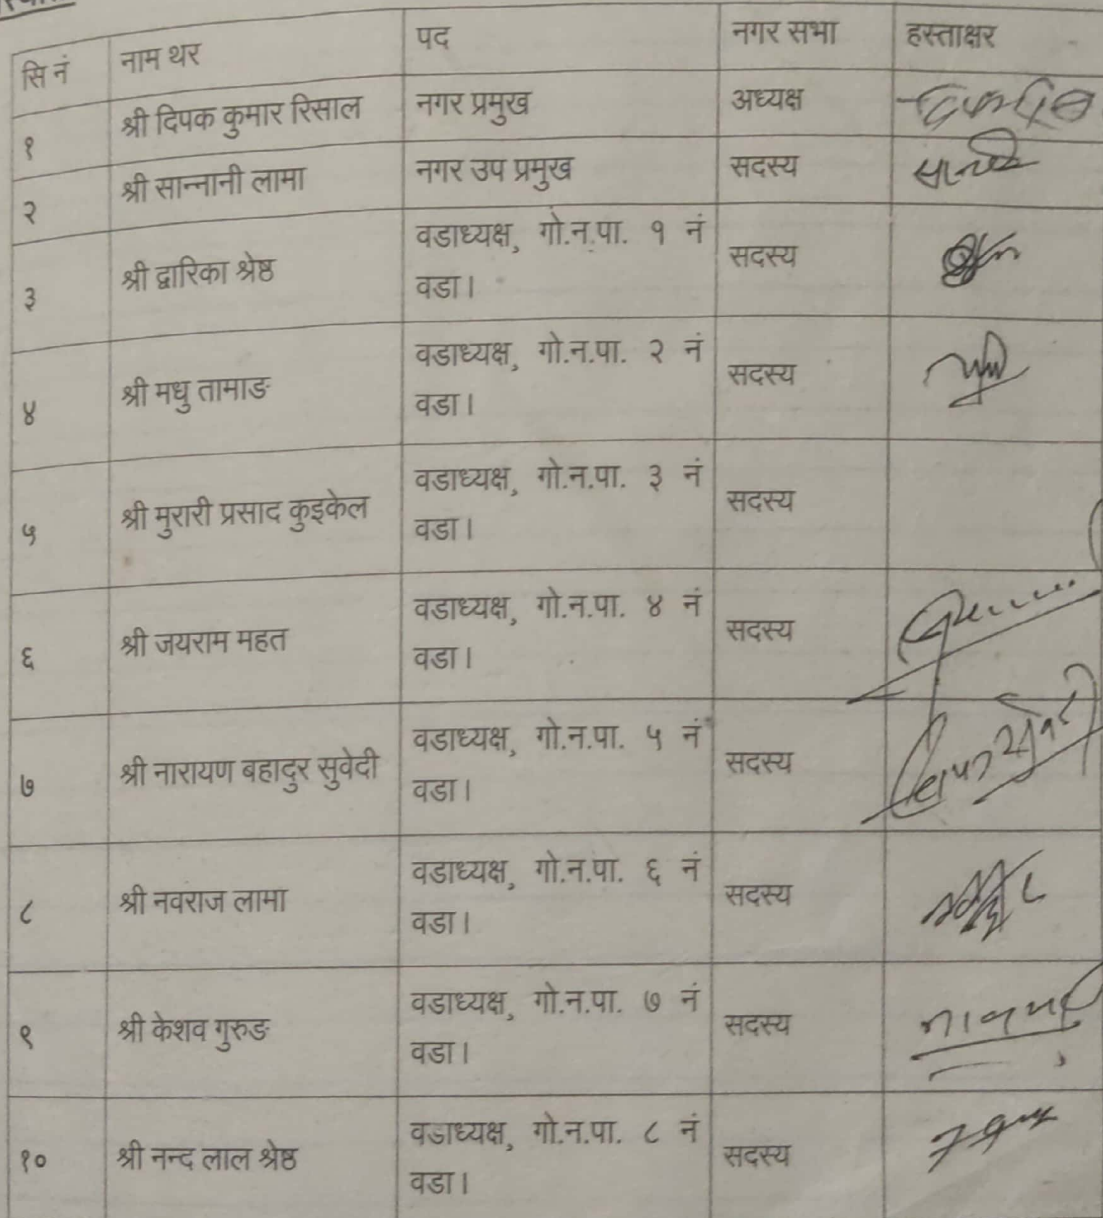 सि नं नाम थर पद नगर सभा हस्ताक्षर
१ श्री दिपक कुमार रिसाल नगर प्रमुख अध्यक्ष
२ श्री सान्नानी लामा नगर उप प्रमुख सदस्य
३ श्री द्वारिका श्रेष्ठ वडाध्यक्ष, गो.न.पा. १ नं सदस्य
वडा।
४ श्री मधु तामाङ वडाध्यक्ष, गो.न.पा. २ नं सदस्य
वडा।
५ श्री मुरारी प्रसाद कुइकेल वडाध्यक्ष, गो.न.पा. ३ नं सदस्य
वडा।
६ श्री जयराम महत वडाध्यक्ष, गो.न.पा. ४ नं सदस्य
वडा।
७ श्री नारायण बहादुर सुवेदी वडाध्यक्ष, गो.न.पा. ५ नं सदस्य
वडा।
८ श्री नवराज लामा वडाध्यक्ष, गो.न.पा. ६ नं सदस्य
वडा।
९ श्री केशव गुरुङ वडाध्यक्ष, गो.न.पा. ७ नं सदस्य
वडा।
१० श्री नन्द लाल श्रेष्ठ वडाध्यक्ष, गो.न.पा. ८ नं सदस्य
वडा।